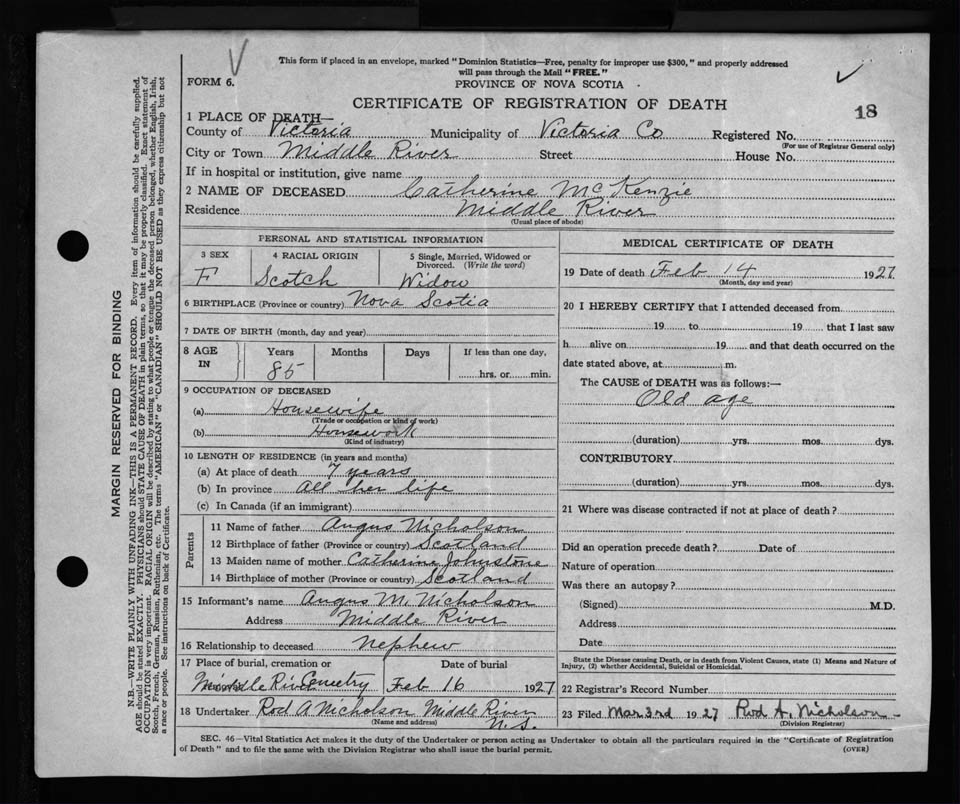 This form if placed in an envelope, marked "Dominion Statistics—Free, penalty for improper use $300," and properly addressed
will pass through the Mail "FREE."
FORM 6.
PROVINCE OF NOVA SCOTIA
CERTIFICATE OF REGISTRATION OF DEATH
18
1 PLACE OF DEATH—
County of Victoria Municipality of Victoria Co Registered No.
(For use of Registrar General only)
City or Town Middle River Street House No.
If in hospital or institution, give name
2 NAME OF DECEASED Catherine McKenzie
Residence Middle River
(Usual place of abode)
PERSONAL AND STATISTICAL INFORMATION
3 SEX 4 RACIAL ORIGIN 5 Single, Married, Widowed or Divorced. (Write the word)
F Scotch Widow
6 BIRTHPLACE (Province or country) Nova Scotia
7 DATE OF BIRTH (month, day and year)
8 AGE IN Years Months Days If less than one day,
85 hrs. or min.
9 OCCUPATION OF DECEASED
(a) Housewife
(Trade or occupation or kind of work)
(b) Housework
(Kind of industry)
10 LENGTH OF RESIDENCE (in years and months)
(a) At place of death 7 years
(b) In province All her life
(c) In Canada (if an immigrant)
Parents
11 Name of father Angus Nicholson
12 Birthplace of father (Province or country) Scotland
13 Maiden name of mother Catherine Johnstone
14 Birthplace of mother (Province or country) Scotland
15 Informant's name Angus M. Nicholson
Address Middle River
16 Relationship to deceased nephew
17 Place of burial, cremation or Date of burial
Middle River Cemetry Feb 16 1927
18 Undertaker Rod A Nicholson Middle River
(Name and address) N.S.
MEDICAL CERTIFICATE OF DEATH
19 Date of death Feb 14 1927
(Month, day and year)
20 I HEREBY CERTIFY that I attended deceased from
19 to 19 that I last saw
h alive on 19 and that death occurred on the
date stated above, at m.
The CAUSE of DEATH was as follows:—
Old age
(duration) yrs. mos. dys.
CONTRIBUTORY
(duration) yrs. mos. dys.
21 Where was disease contracted if not at place of death?
Did an operation precede death? Date of
Nature of operation
Was there an autopsy?
(Signed) M.D.
Address
Date
State the Disease causing Death, or in death from Violent Causes, state (1) Means and Nature of
Injury, (2) whether Accidental, Suicidal or Homicidal.
22 Registrar's Record Number
23 Filed Mar 3rd 1927 Rod A. Nicholson
(Division Registrar)
SEC. 46—Vital Statistics Act makes it the duty of the Undertaker or person acting as Undertaker to obtain all the particulars required in the "Certificate of Registration
of Death" and to file the same with the Division Registrar who shall issue the burial permit.
(OVER)
MARGIN RESERVED FOR BINDING
N.B.—WRITE PLAINLY WITH UNFADING INK—THIS IS A PERMANENT RECORD. Every item of information should be carefully supplied.
AGE should be stated EXACTLY. PHYSICIANS should STATE CAUSE OF DEATH in plain terms, so that it may be properly classified. Exact statement of
OCCUPATION is very important. RACIAL ORIGIN will be described by stating to what people or tongue the deceased person belonged, whether English, Irish,
Scotch, French, German, Russian, Ruthenian, etc. The terms "AMERICAN" or "CANADIAN" SHOULD NOT BE USED as they express citizenship but not
a race or people. See instructions on back of Certificate.